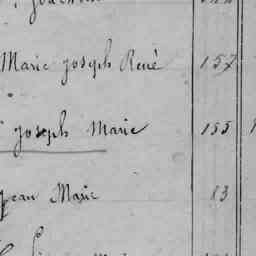 Marie Joseph René 157
Joseph Marie 155
Jean Marie 83